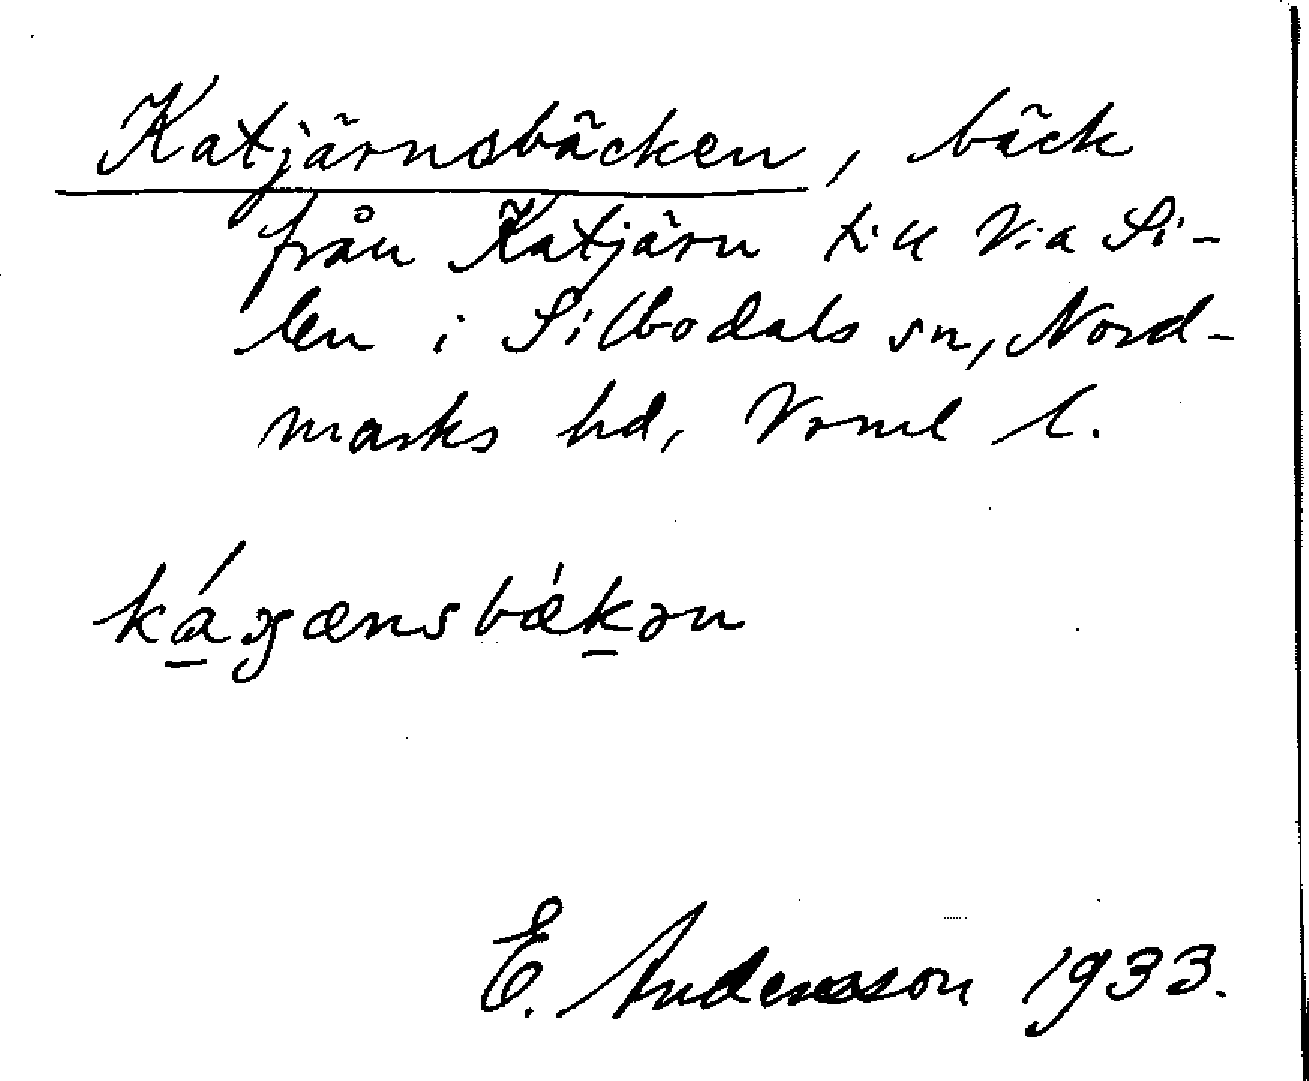 Katjärnsbäcken, bäck
från Katjärn till V:a Si-
len i Silbodals sn, Nord-
marks hd, Vrml l.
E. Andersson 1933.